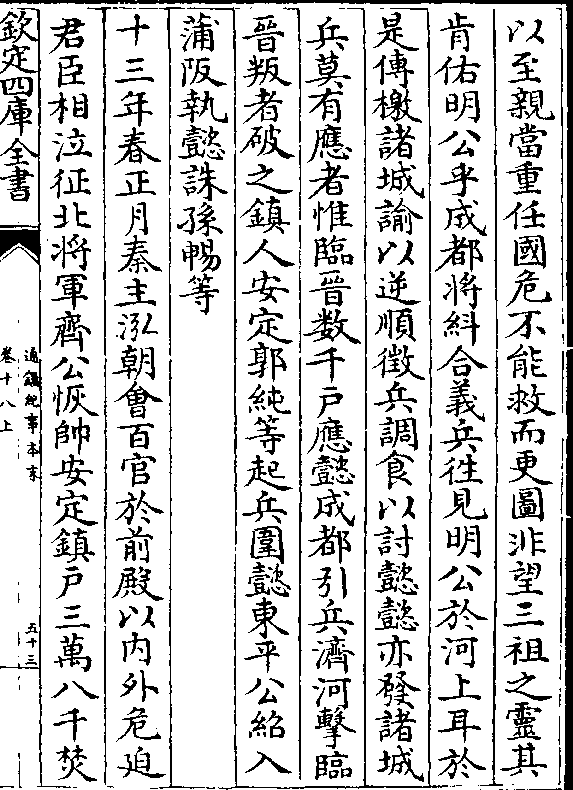 以至親當重任國危不能救而更圖非望三祖之靈其
肯佑明公乎成都將糾合義兵徃見明公於河上耳於
是傳檄諸城諭以逆順徴兵調食以討懿懿亦發諸城
兵莫有應者惟臨晉数千户應懿成都引兵濟河擊臨
晉叛者破之鎮人安定郭純等起兵圍懿東平公紹入
蒲阪執懿誅孫暢等
十三年春正月秦主泓朝會百官於前殿以内外危迫
君臣相泣征北將軍齊公恢帥安定鎮户三萬八千焚
欽定四庫全書
通鑑紀事本末
卷十八上
五十三